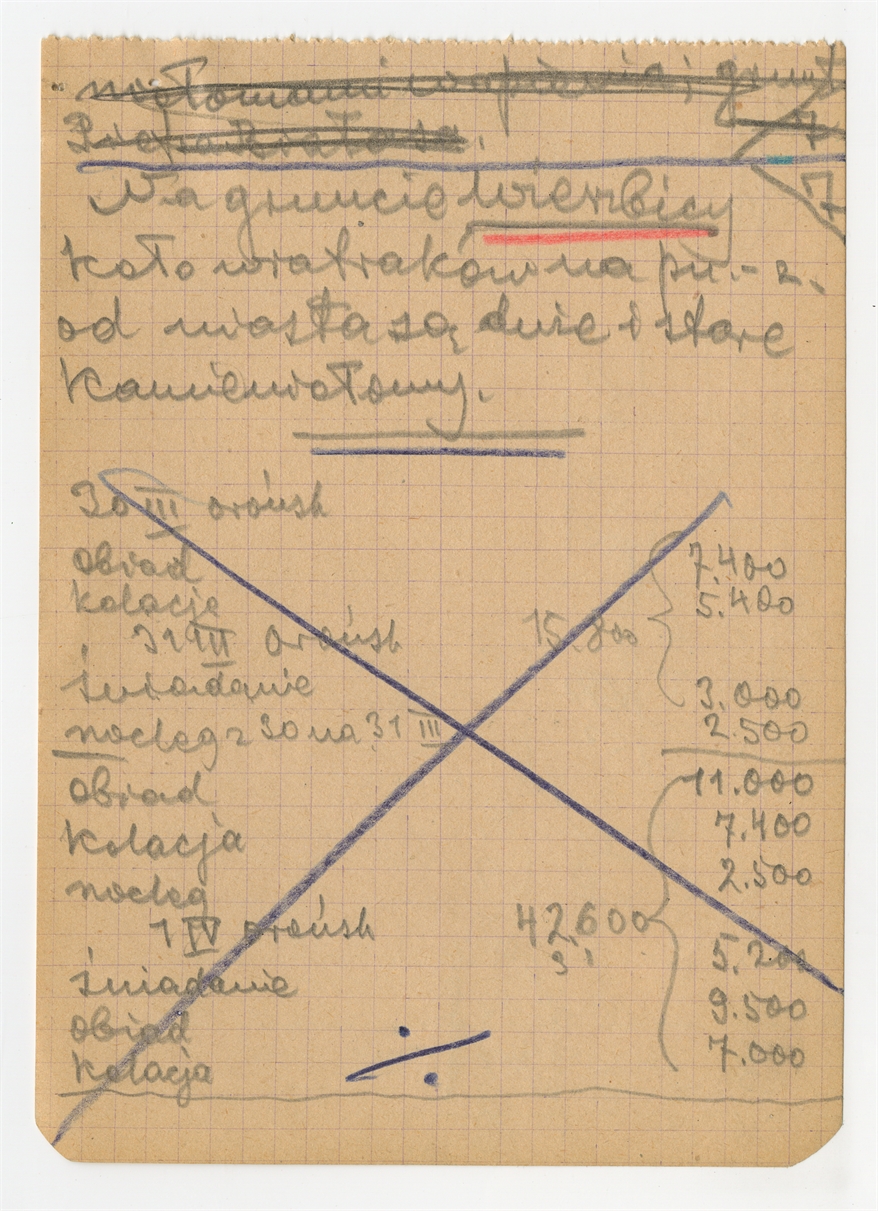 wapienia; grunt
Piotra Białasa.
7
7
Na gruncie Wierzbicy
koło wiatraków na pn.-z.
od miasta są duże i stare
kamieniołomy.
30 III Orońsk
obiad 7.400
kolacje 5.400
31 III Orońsk 15.800
śniadanie 3.000
nocleg z 30 na 31 III 2.500
obiad 11.000
kolacja 7.400
nocleg 2.500
1 IV Orońsk 42600
śniadanie 5.200
obiad 9.500
kolacja 7.000